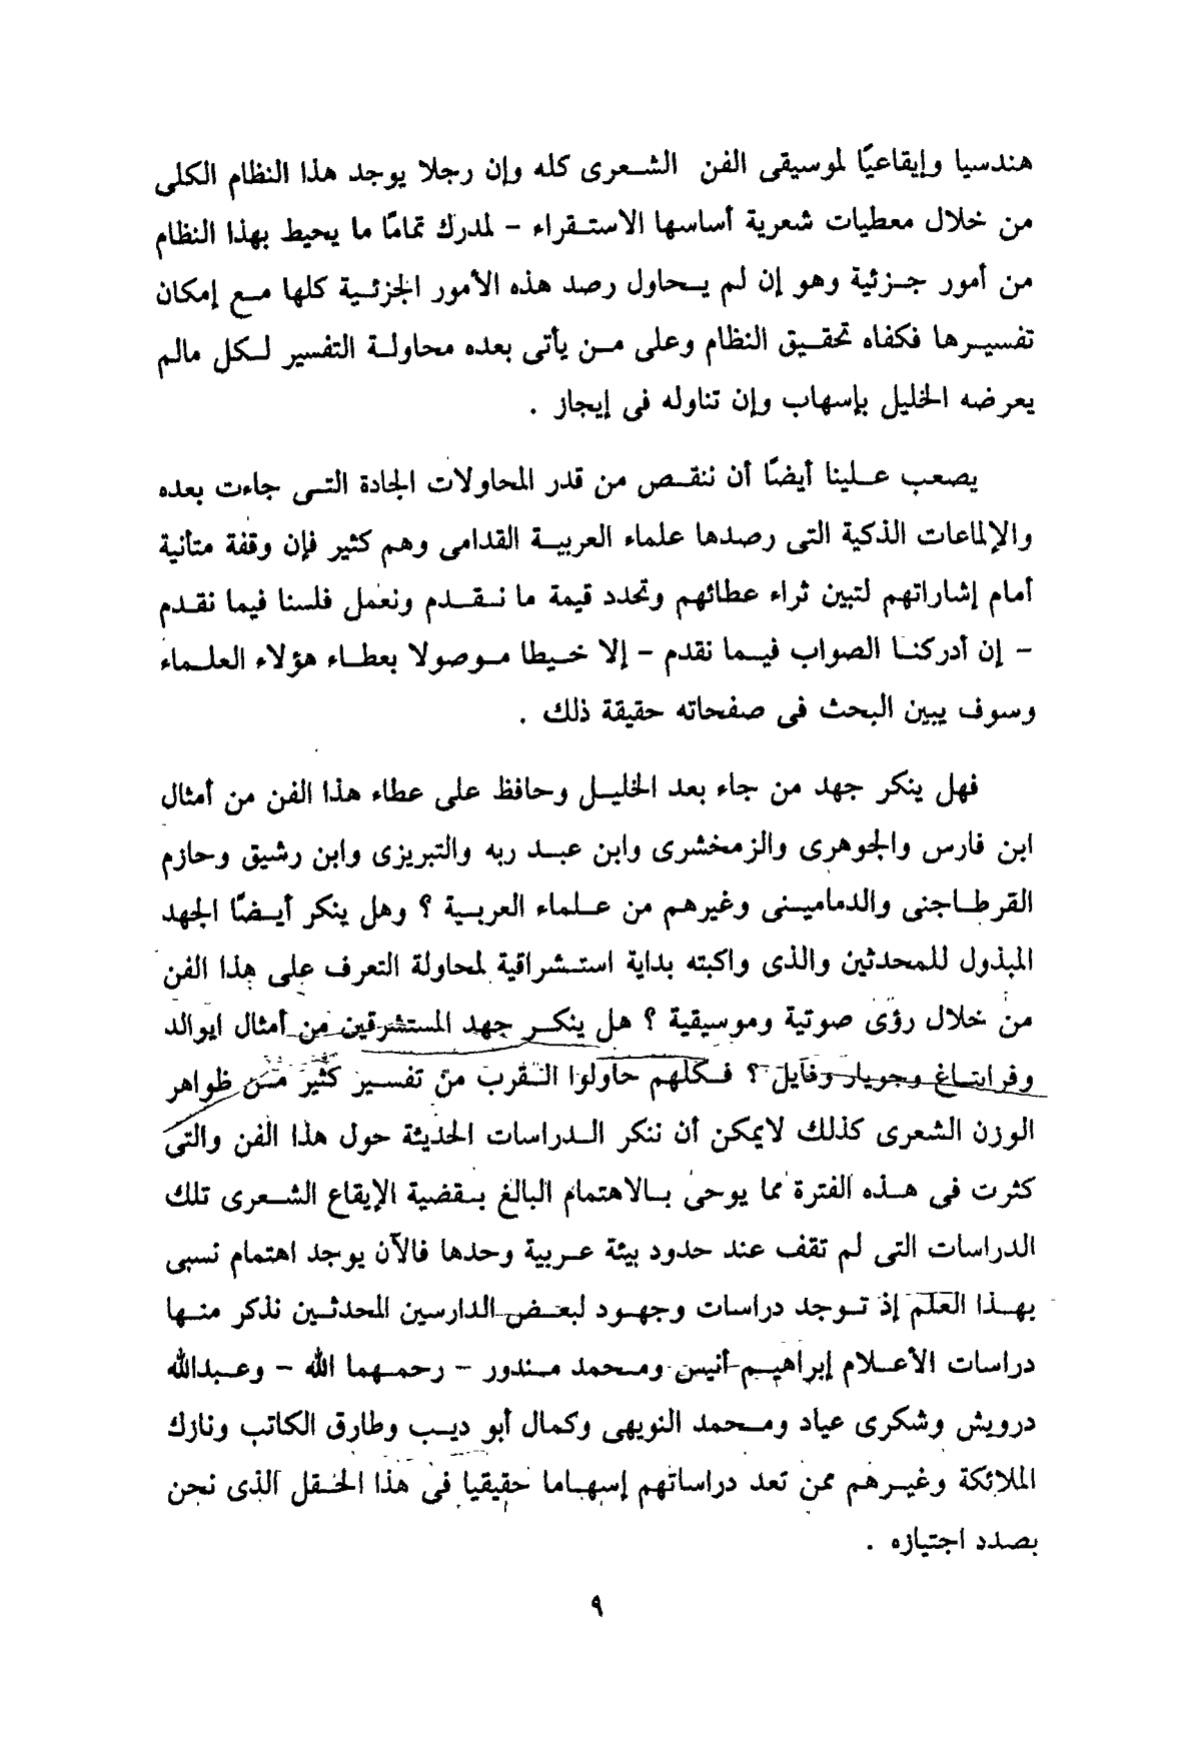 هندسيا وإيقاعيًا لموسيقى الفن الشعرى كله وإن رجلا يوجد هذا النظام الكلى
من خلال معطيات شعرية أساسها الاستقراء - لمدرك تمامًا ما يحيط بهذا النظام
من أمور جزئية وهو إن لم يحاول رصد هذه الأمور الجزئية كلها مع إمكان
تفسيرها فكفاه تحقيق النظام وعلى من يأتى بعده محاولة التفسير لكل مالم
يعرضه الخليل بإسهاب وإن تناوله فى إيجاز .
يصعب علينا أيضًا أن ننقص من قدر المحاولات الجادة التى جاءت بعده
والإلماعات الذكية التى رصدها علماء العربية القدامى وهم كثير فإن وقفة متأنية
أمام إشاراتهم لتبين ثراء عطائهم وتحدد قيمة ما نقدم ونعمل فلسنا فيما نقدم
- إن أدركنا الصواب فيما نقدم - إلا خيطا موصولا بعطاء هؤلاء العلماء
وسوف يبين البحث فى صفحاته حقيقة ذلك .
فهل ينكر جهد من جاء بعد الخليل وحافظ على عطاء هذا الفن من أمثال
ابن فارس والجوهرى والزمخشرى وابن عبد ربه والتبريزى وابن رشيق وحازم
القرطاجنى والدمامينى وغيرهم من علماء العربية ؟ وهل ينكر أيضًا الجهد
المبذول للمحدثين والذى واكبته بداية استشراقية لمحاولة التعرف على هذا الفن
من خلال رؤى صوتية وموسيقية ؟ هل ينكر جهد المستشرقين من أمثال ايوالد
وفرايتاغ وجويار وفايل ؟ فكلهم حاولوا التقرب من تفسير كثير من ظواهر
الوزن الشعرى كذلك لايمكن أن ننكر الدراسات الحديثة حول هذا الفن والتى
كثرت فى هذه الفترة مما يوحى بالاهتمام البالغ بقضية الإيقاع الشعرى تلك
الدراسات التى لم تقف عند حدود بيئة عربية وحدها فالآن يوجد اهتمام نسبى
بهذا العلم إذ توجد دراسات وجهود لبعض الدارسين المحدثين نذكر منها
دراسات الأعلام إبراهيم أنيس ومحمد مندور - رحمهما الله - وعبدالله
درويش وشكرى عياد ومحمد النويهى وكمال أبو ديب وطارق الكاتب ونازك
الملائكة وغيرهم ممن تعد دراساتهم إسهاما حقيقيا فى هذا الحقل الذى نحن
بصدد اجتيازه .
٩